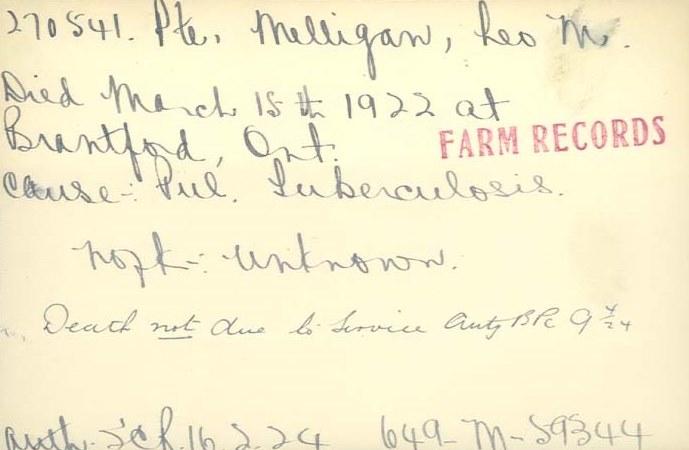 270541. Pte. Melligan, Leo M.
Died March 15th 1922 at
Brantford, Ont.
FARM RECORDS
Cause:- Pul. Tuberculosis.
nofk-: unknown.
Death not due to Service Auty BPC 9 4/24
auth. 16.2.24 649-M-59344